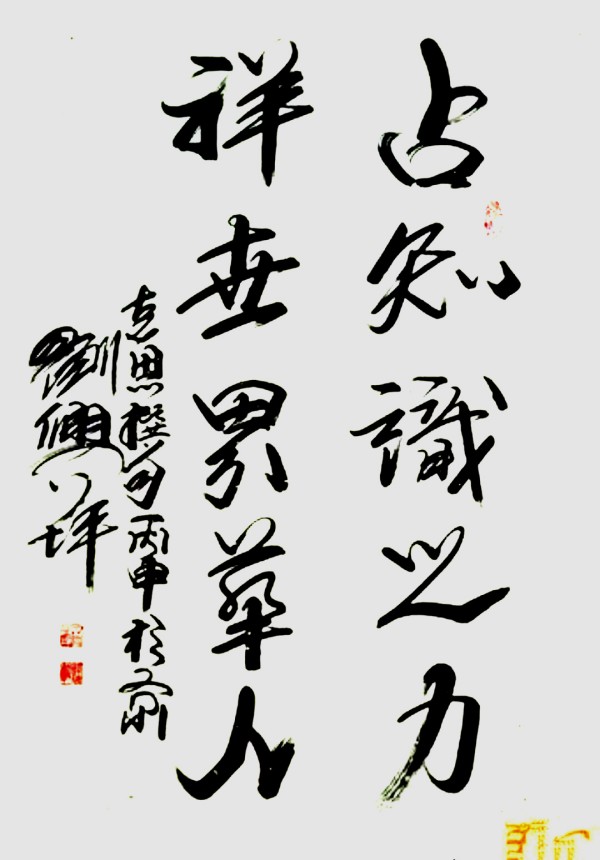 占知識之力
祥世界華人
志思撰句丙申於渝
劉